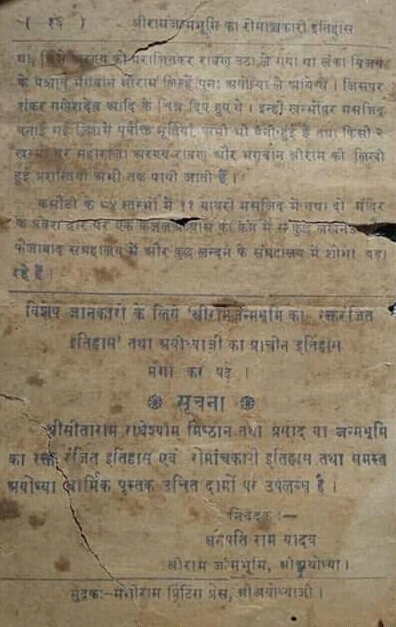 ( १६ ) श्रीरामजन्मभूमि का रोमाञ्चकारी इतिहास
था, जिसे अनरण्य को पराजितकर रावण उठा ले गया था लंका विजय
के पश्चात् भगवान श्रीराम जिन्हें पुनः अयोध्या ले आये थे । जिसपर
शंकर गणेशादेव आदि के चित्र दिए हुए थे । इन्हीं खम्भोंपर मसजिद
बनाई गई जिसमें पूर्वोक्त मूर्तियाँ अभी भी बनी हुई हैं तथा किसी २
खम्भों पर महाराजा अनरण्य रावण और भगवान श्रीराम की लिखी
हुई प्रशस्तियां अभी तक पायी जाती हैं ।
कसौटी के ८४ स्तम्भों में ११ बाबरी मसजिद में तथा दो मंदिर
के प्रवेश द्वार पर एक की कब्र में से कुछ लखनऊ
फैजाबाद संग्रहालय में और कुछ लन्दन के संग्रहालय में शोभा बढ़ा
रहे हैं ।
विशेष जानकारी के लिये 'श्रीरामजन्मभूमि का रक्तरंजित
इतिहास' तथा अयोध्याजी का प्राचीन इतिहास
मंगा कर पढ़ें ।
❁ सूचना ❁
श्रीसीताराम राधेश्याम मिष्ठान तथा प्रसाद या जन्मभूमि
का रक्त रंजित इतिहास एवं रोमांचकारी इतिहास तथा समस्त
अयोध्या धार्मिक पुस्तक उचित दामों पर उपलब्ध है ।
निवेदक :—
धनपति राम यादव
श्रीराम जन्मभूमि, श्रीअयोध्या ।
मुद्रक:-मनीराम प्रिंटिंग प्रेस, श्रीअयोध्याजी ।